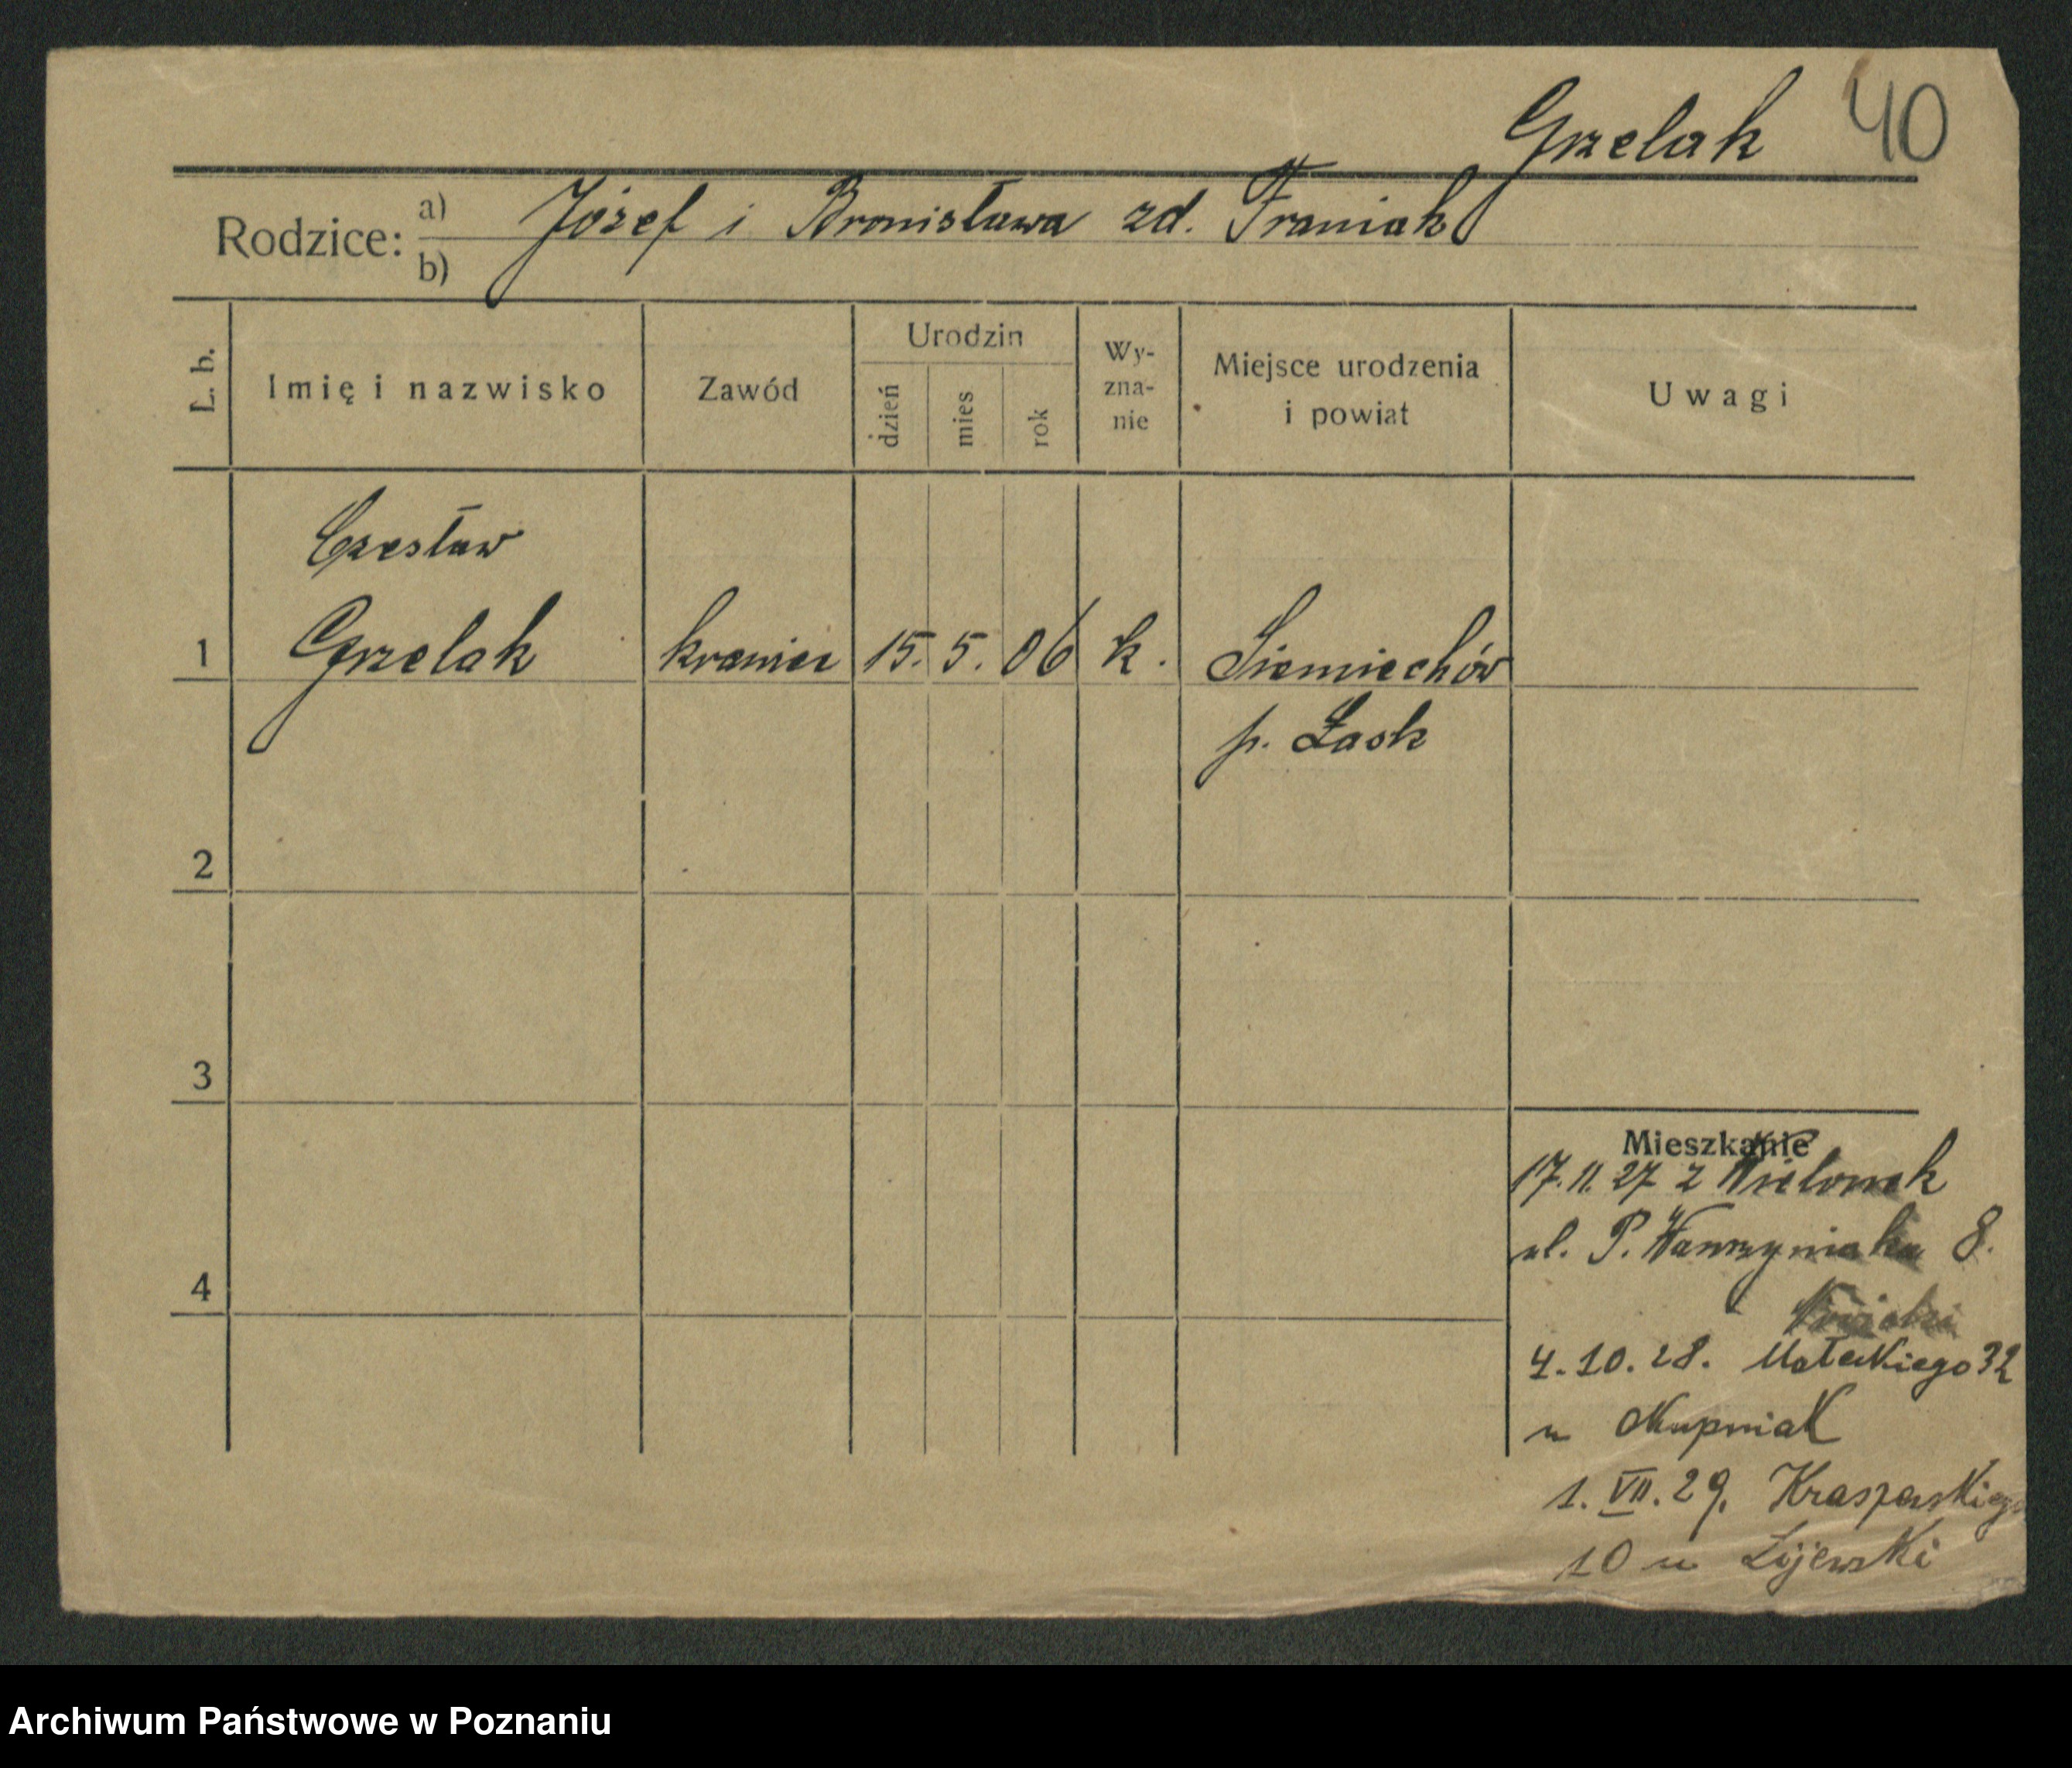 Grzelak 40
Rodzice: a) Józef i Bronisława zd. Franiak
b)
L. b.
Imię i nazwisko
Zawód
Urodzin
dzień
mies
rok
Wy-
zna-
nie
Miejsce urodzenia
i powiat
Uwagi
Czesław
1 Grzelak krawiec 15. 5. 06 k. Siemiechów
p. Łask
2
3
4
Mieszkanie
17.11.27 z
ul. P. Wawrzyniaka 8.
4.10.28. Małeckiego 32
u
1. VII. 29.
10 u Zyjewski
Archiwum Państwowe w Poznaniu